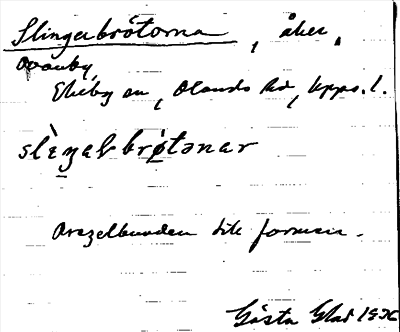 Slingerbrötorna, åker,
Ovanby
Ekeby sn, Olands hd, Upps. l.
slèŋəbrø̀tənar
Oregelbunden till formen.
Gösta Elad 1936